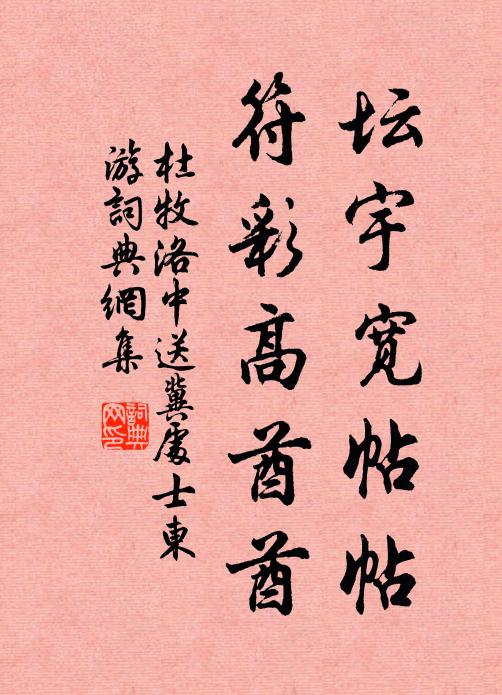 坛宇宽帖帖
符彩高酋酋
杜牧洛中送冀處士東
游詞典網集
詞典網印